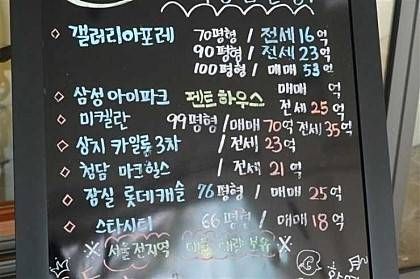 갤러리아포레 70평형 / 전세 16억
90평형 / 전세 23억
100평형 / 매매 53억
삼성 아이파크 펜트하우스 매매 억
전세 25억
미켈란 99평형 / 매매 70억 전세 35억
상지 카일룸 3차 / 전세 23억
청담 마크힐스 / 전세 21억
잠실 롯데캐슬 76평형 / 매매 25억
스타시티 66평형 / 매매 18억
서울 전지역 매물 대량 보유